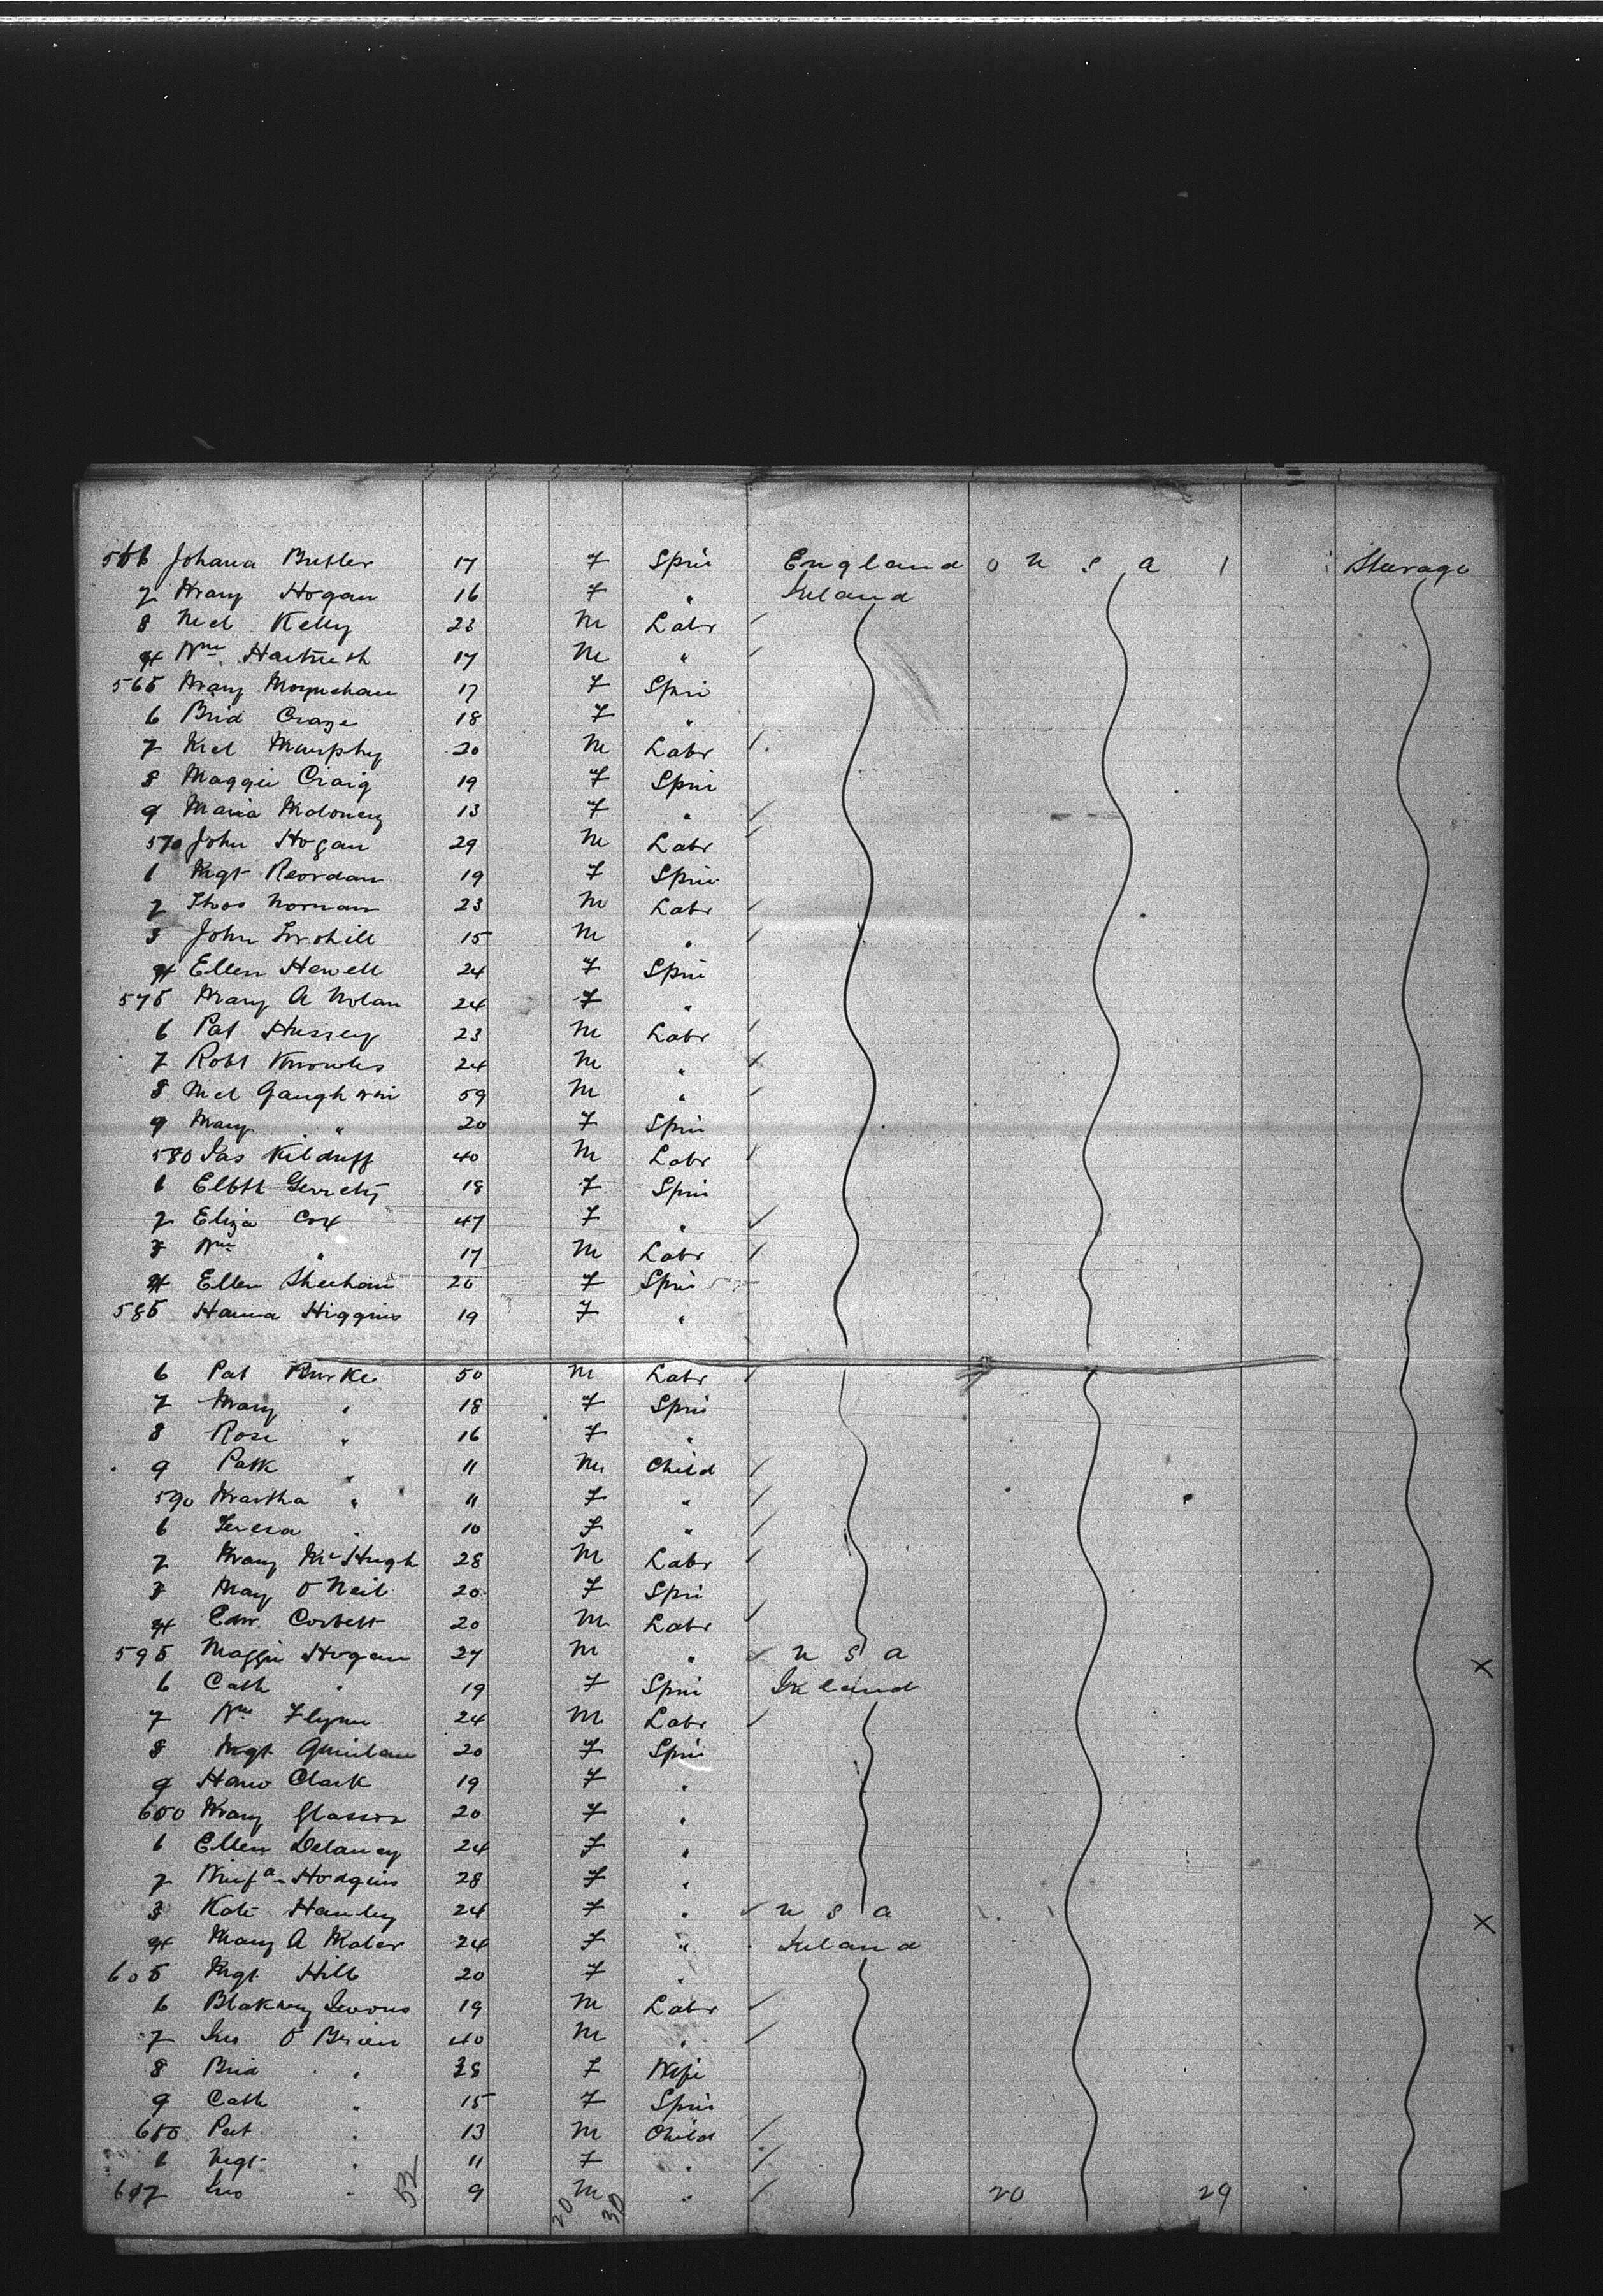 561 Johana Butler 17 F Spin England U S A 1 Steerage
2 Mary Hogan 16 F " Ireland
3 Mcl Kelly 23 M Labr
4 Wm 17 M "
565 Mary Moynehan 17 F Spin
6 Brid 18 F "
7 Mcl Murphy 20 M Labr
8 Maggie Craig 19 F Spin
9 Maria Moloney 13 F "
570 John Hogan 29 M Labr
1 Mgt Reordan 19 F Spin
2 Thos Nornan 23 M Labr
3 John 15 M "
4 Ellen Hewell 24 F Spin
575 Mary A Nolan 24 F "
6 Pat Hussey 23 M Labr
7 Robt Knowles 24 M "
8 Mcl 59 M "
9 Mary " 20 F Spin
580 Jas Kilduff 40 M Labr
1 Elbth Gerrety 18 F Spin
2 Eliza Cox 47 F "
3 Wm " 17 M Labr
4 Ellen Sheehan 20 F Spin
585 Hanna Higgins 19 F "
6 Pat Burke 50 M Labr
7 Mary " 18 F Spin
8 Rose " 16 F "
9 Patk " 11 M Child
590 Martha " 11 F "
1 Teresa " 10 F "
2 Mary McHugh 28 M Labr
3 Mary O Neil 20 F Spin
4 Edw. Corbett 20 M Labr
595 Maggie Hogan 27 M " U S A X
6 Cath " 19 F Spin Ireland
7 Wm Flynn 24 M Labr
8 Mgt Quinlan 20 F Spin
9 Clark 19 F "
600 Mary 20 F "
1 Ellen Delaney 24 F "
2 Hodgins 28 F "
3 Kate Hanley 24 F " U S A X
4 Mary A 24 F " Ireland
605 Mgt Hill 20 F "
6 Blakney 19 M Labr
7 Jno O Brien 40 M "
8 Brid " 38 F Wife
9 Cath " 15 F Spin
610 Pat " 13 M Child
1 Mgt " 11 F "
612 Jno " 9 M "
52 20 30 20 29